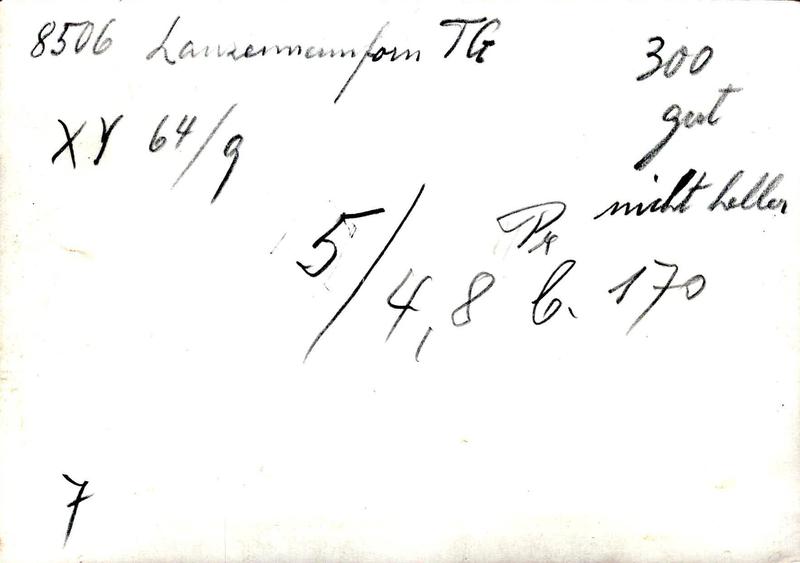 8506 Lanzenneunforn TG
300
gut
nicht heller
XY 64/9
5/4,8 b. 170
7